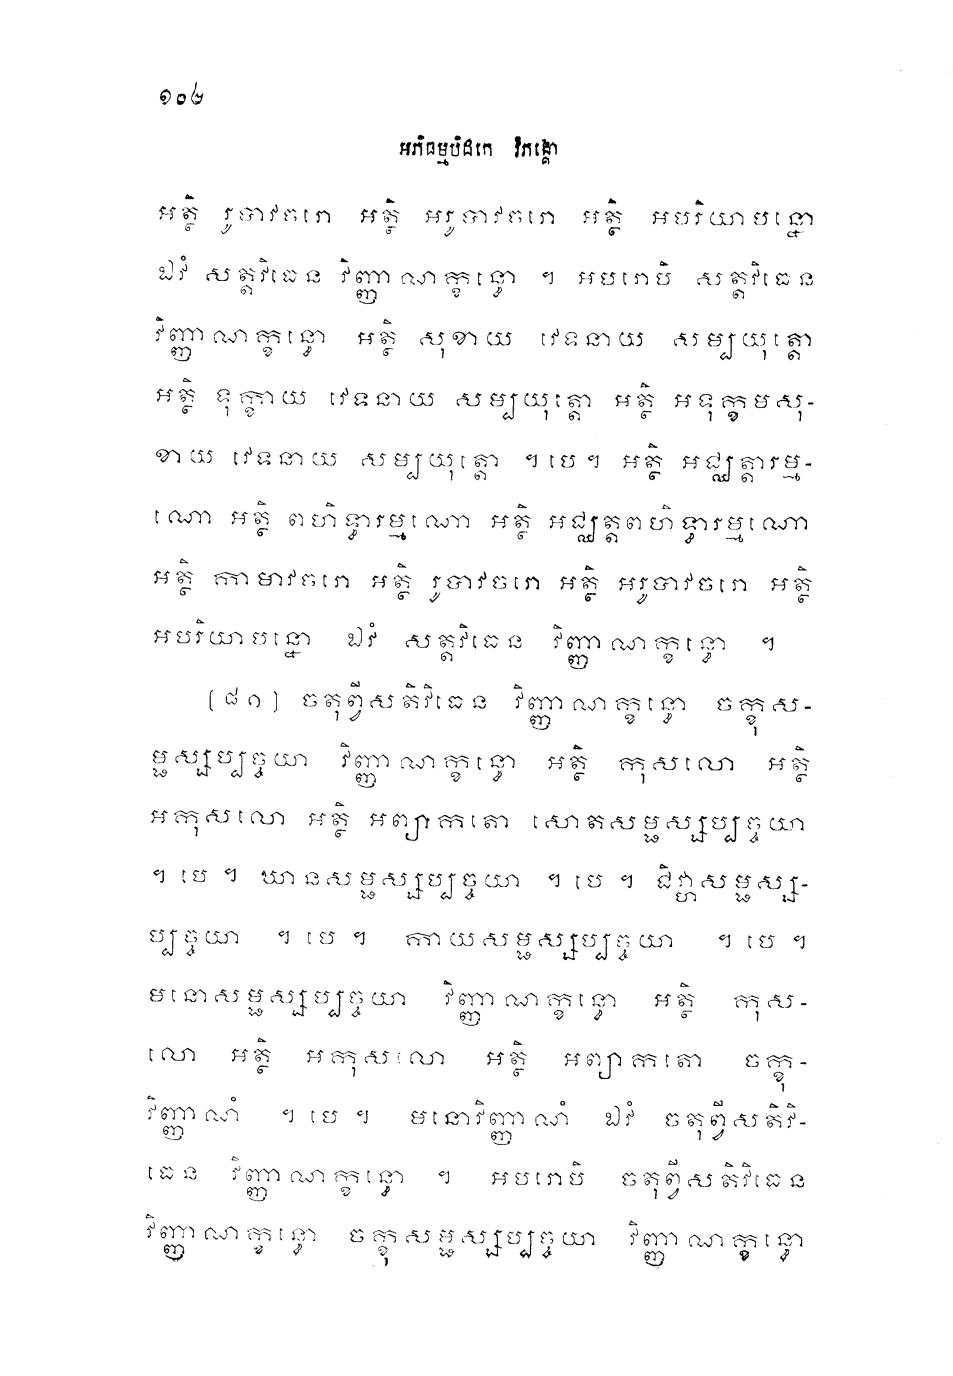 ១០៤
អភិធម្មបិដកេ វិភង្គោ
អត្ថិ រូបាវចរោ អត្ថិ អរូបាវចរោ អត្ថិ អបរិយាបន្នោ
ឯវំ សត្តវិធេន វិញ្ញាណក្ខន្ធោ ។ អបរោបិ សត្តវិធេន
វិញ្ញាណក្ខន្ធោ អត្ថិ សុខាយ វេទនាយ សម្បយុត្តោ
អត្ថិ ទុក្ខាយ វេទនាយ សម្បយុត្តោ អត្ថិ អទុក្ខមសុ-
ខាយ វេទនាយ សម្បយុត្តោ ។បេ។ អត្ថិ អជ្ឈត្តារម្ម-
ណោ អត្ថិ ពហិទ្ធារម្មណោ អត្ថិ អជ្ឈត្តពហិទ្ធារម្មណោ
អត្ថិ កាមាវចរោ អត្ថិ រូបាវចរោ អត្ថិ អរូបាវចរោ អត្ថិ
អបរិយាបន្នោ ឯវំ សត្តវិធេន វិញ្ញាណក្ខន្ធោ ។
[៨១] ចតុព្វីសតិវិធេន វិញ្ញាណក្ខន្ធោ ចក្ខុស-
ម្ផស្សប្បច្ចយា វិញ្ញាណក្ខន្ធោ អត្ថិ កុសលោ អត្ថិ
អកុសលោ អត្ថិ អព្យាកតោ សោតសម្ផស្សប្បច្ចយា
។ បេ ។ ឃានសម្ផស្សប្បច្ចយា ។ បេ ។ ជិវ្ហាសម្ផស្ស-
ប្បច្ចយា ។ បេ ។ កាយសម្ផស្សប្បច្ចយា ។ បេ ។
មនោសម្ផស្សប្បច្ចយា វិញ្ញាណក្ខន្ធោ អត្ថិ កុស-
លោ អត្ថិ អកុសលោ អត្ថិ អព្យាកតោ ចក្ខុ-
វិញ្ញាណំ ។ បេ ។ មនោវិញ្ញាណំ ឯវំ ចតុព្វីសតិវិ-
ធេន វិញ្ញាណក្ខន្ធោ ។ អបរោបិ ចតុព្វីសតិវិធេន
វិញ្ញាណក្ខន្ធោ ចក្ខុសម្ផស្សប្បច្ចយា វិញ្ញាណក្ខន្ធោ